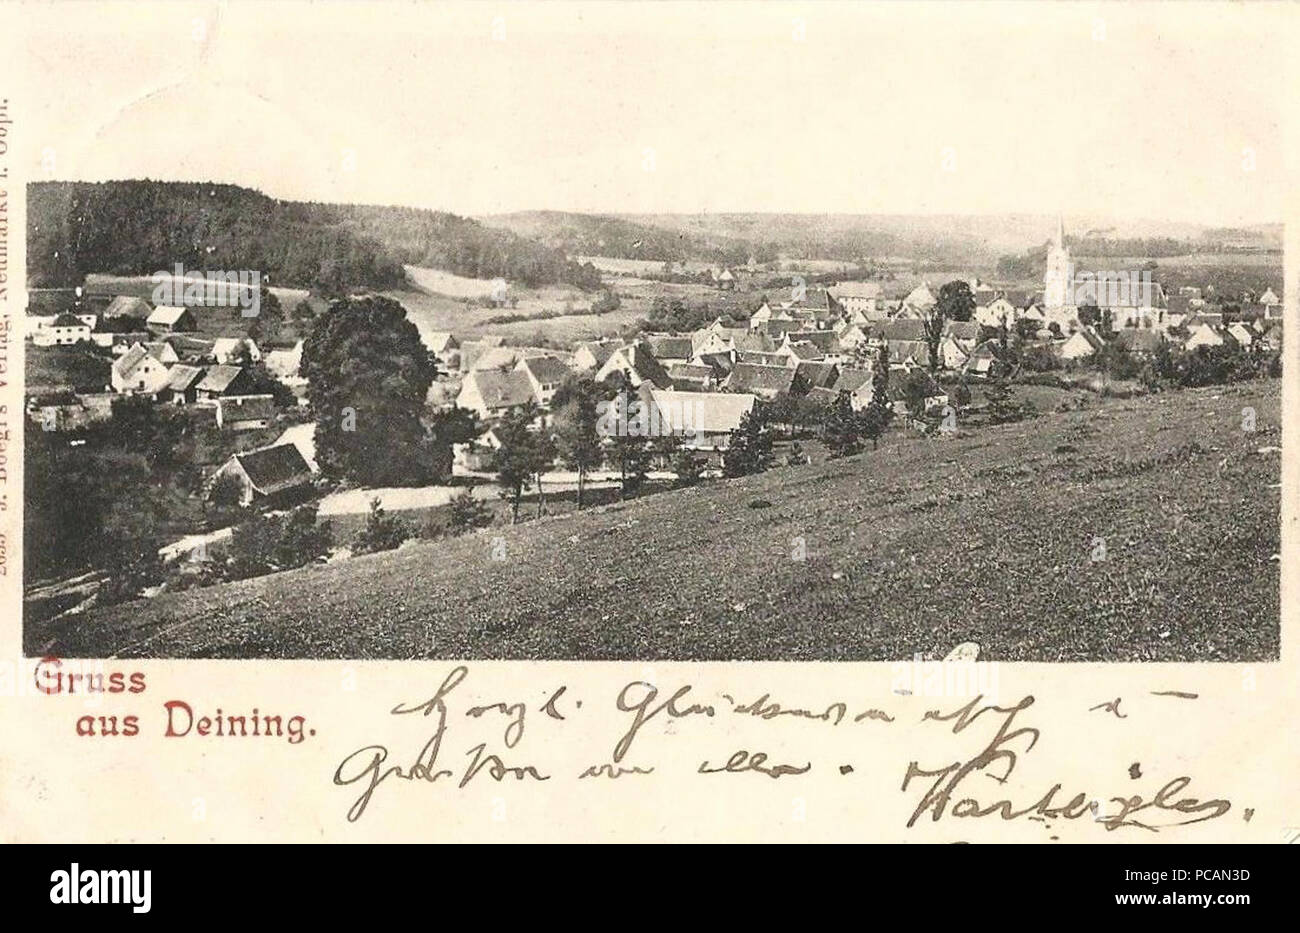 2655 J. Boegl's Verlag, Neumarkt i. Obpf.
Gruss
aus Deining.
Herzl. Glückwunsch u
Grüsse an alle.
alamy
Image ID: PCAN3D
www.alamy.com